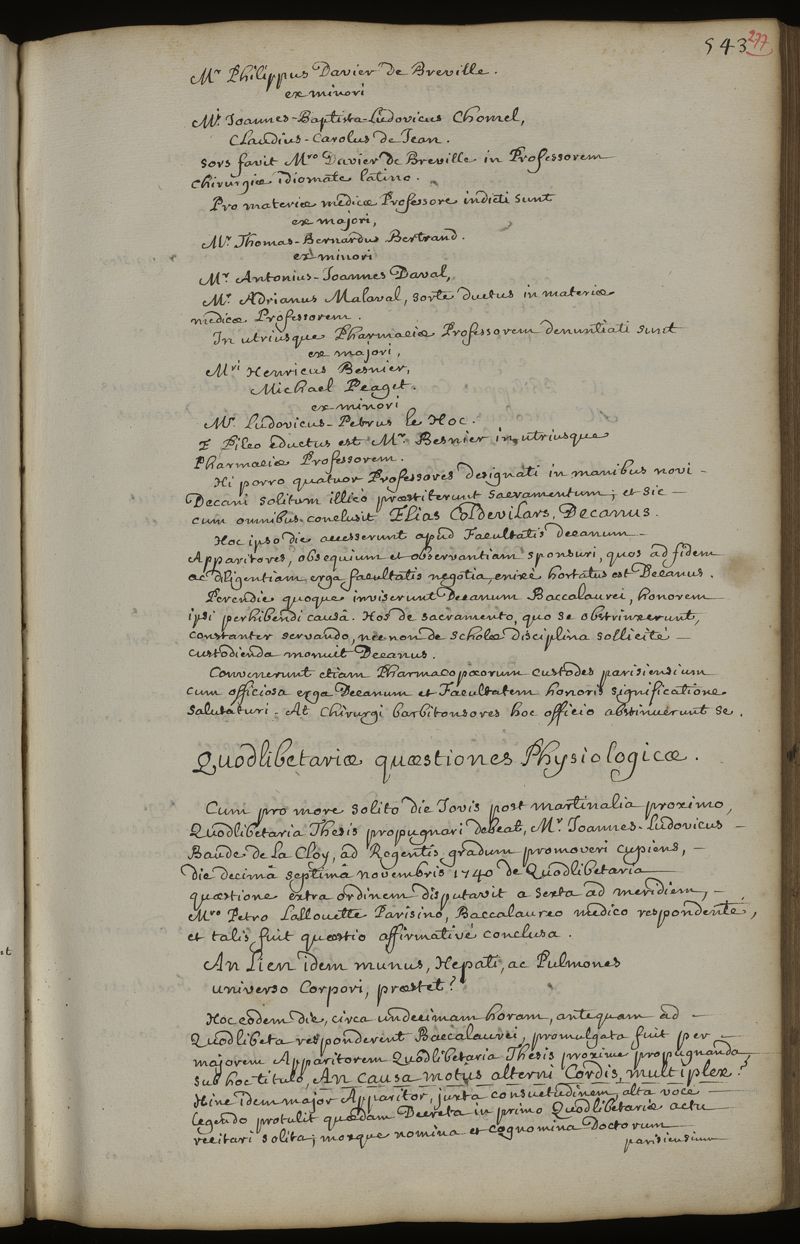 543 277
Mr Philippus Davier de Breville.
ex minori
Mri Joannes-Baptista-Ludovicus Chomel,
Claudius-Carolus de Jean.
sors favit Mro Davier de Breville in Professorem
chirurgiæ idiomate latino.
Pro materiæ medicæ Professore indicti sunt
ex majori,
Mr. Thomas-Bernardus Bertrand.
ex minori
Mr Antonius-Joannes Daval,
Mr. Adrianus Malaval, sorte ductus in materiæ
medicæ Professorem.
In utriusque Pharmaciæ Professorem denuntiati sunt
ex majori,
Mri Henricus Besnier,
Michael Peaget.
ex minori
Mr. Ludovicus-Petrus le Hoc.
E Pileo eductus est Mr. Besnier in utriusque
Pharmaciæ Professorem.
Hi porro quatuor Professores designati in manibus novi
Decani solitum illicò præstiterunt sacramentum; et sic
cum omnibus conclusit Elias Coldevilars, Decanus.
Hoc ipso die accesserunt apud Facultatis decanum
Apparitores, obsequium et observantiam sponsuri, quos ad fidem
ac diligentiam erga facultatis negotia enixè hortatus est Decanus.
Perendie quoque inviserunt Decanum Baccalaurei, honorem
ipsi perhibendi causâ. Hos de sacramento, quo se obstrinxerunt,
constanter servando, nec non de scholæ disciplina sollicitè
custodienda monuit Decanus.
Convenerunt etiam Pharmacopæorum custodes parisiensium
cum officiosa erga Decanum et Facultatem honoris significatione
salutaturi. At Chirurgi barbitonsores hoc officio abstinuerunt se.
Quodlibetariæ quæstiones Physiologicæ.
Cum pro more solito die Jovis post martinalia proximo,
Quodlibetaria Thesis propugnari debeat, Mr. Joannes-Ludovicus
Baude de la Cloy, ad Regentis gradum promoveri cupiens,
die decimâ septimâ novembris 1740 de Quodlibetaria
quæstione extra ordinem disputavit a sexta ad meridiem,
Mro Petro Lallouette Parisino, Baccalaureo medico respondente,
et talis fuit quæstio affirmativè conclusa.
An Lien idem munus, Hepati, ac Pulmones
universo Corpori, præstet?
Hoc eodem die, circa undecimam horam, antequam ad
Quodlibeta responderent Baccalaurei, promulgata fuit per
majorem Apparitorem Quodlibetaria Thesis proxime propugnanda,
sub hoc titulo, An causa motus alterni Cordis, multiplex?
Hinc idem major Apparitor, juxta consuetudinem, alta voce
legendo protulit quædam Decreta in primo Quodlibetariæ actu
recitari solita; moxque nomina et cognomina Doctorum
parisiensium